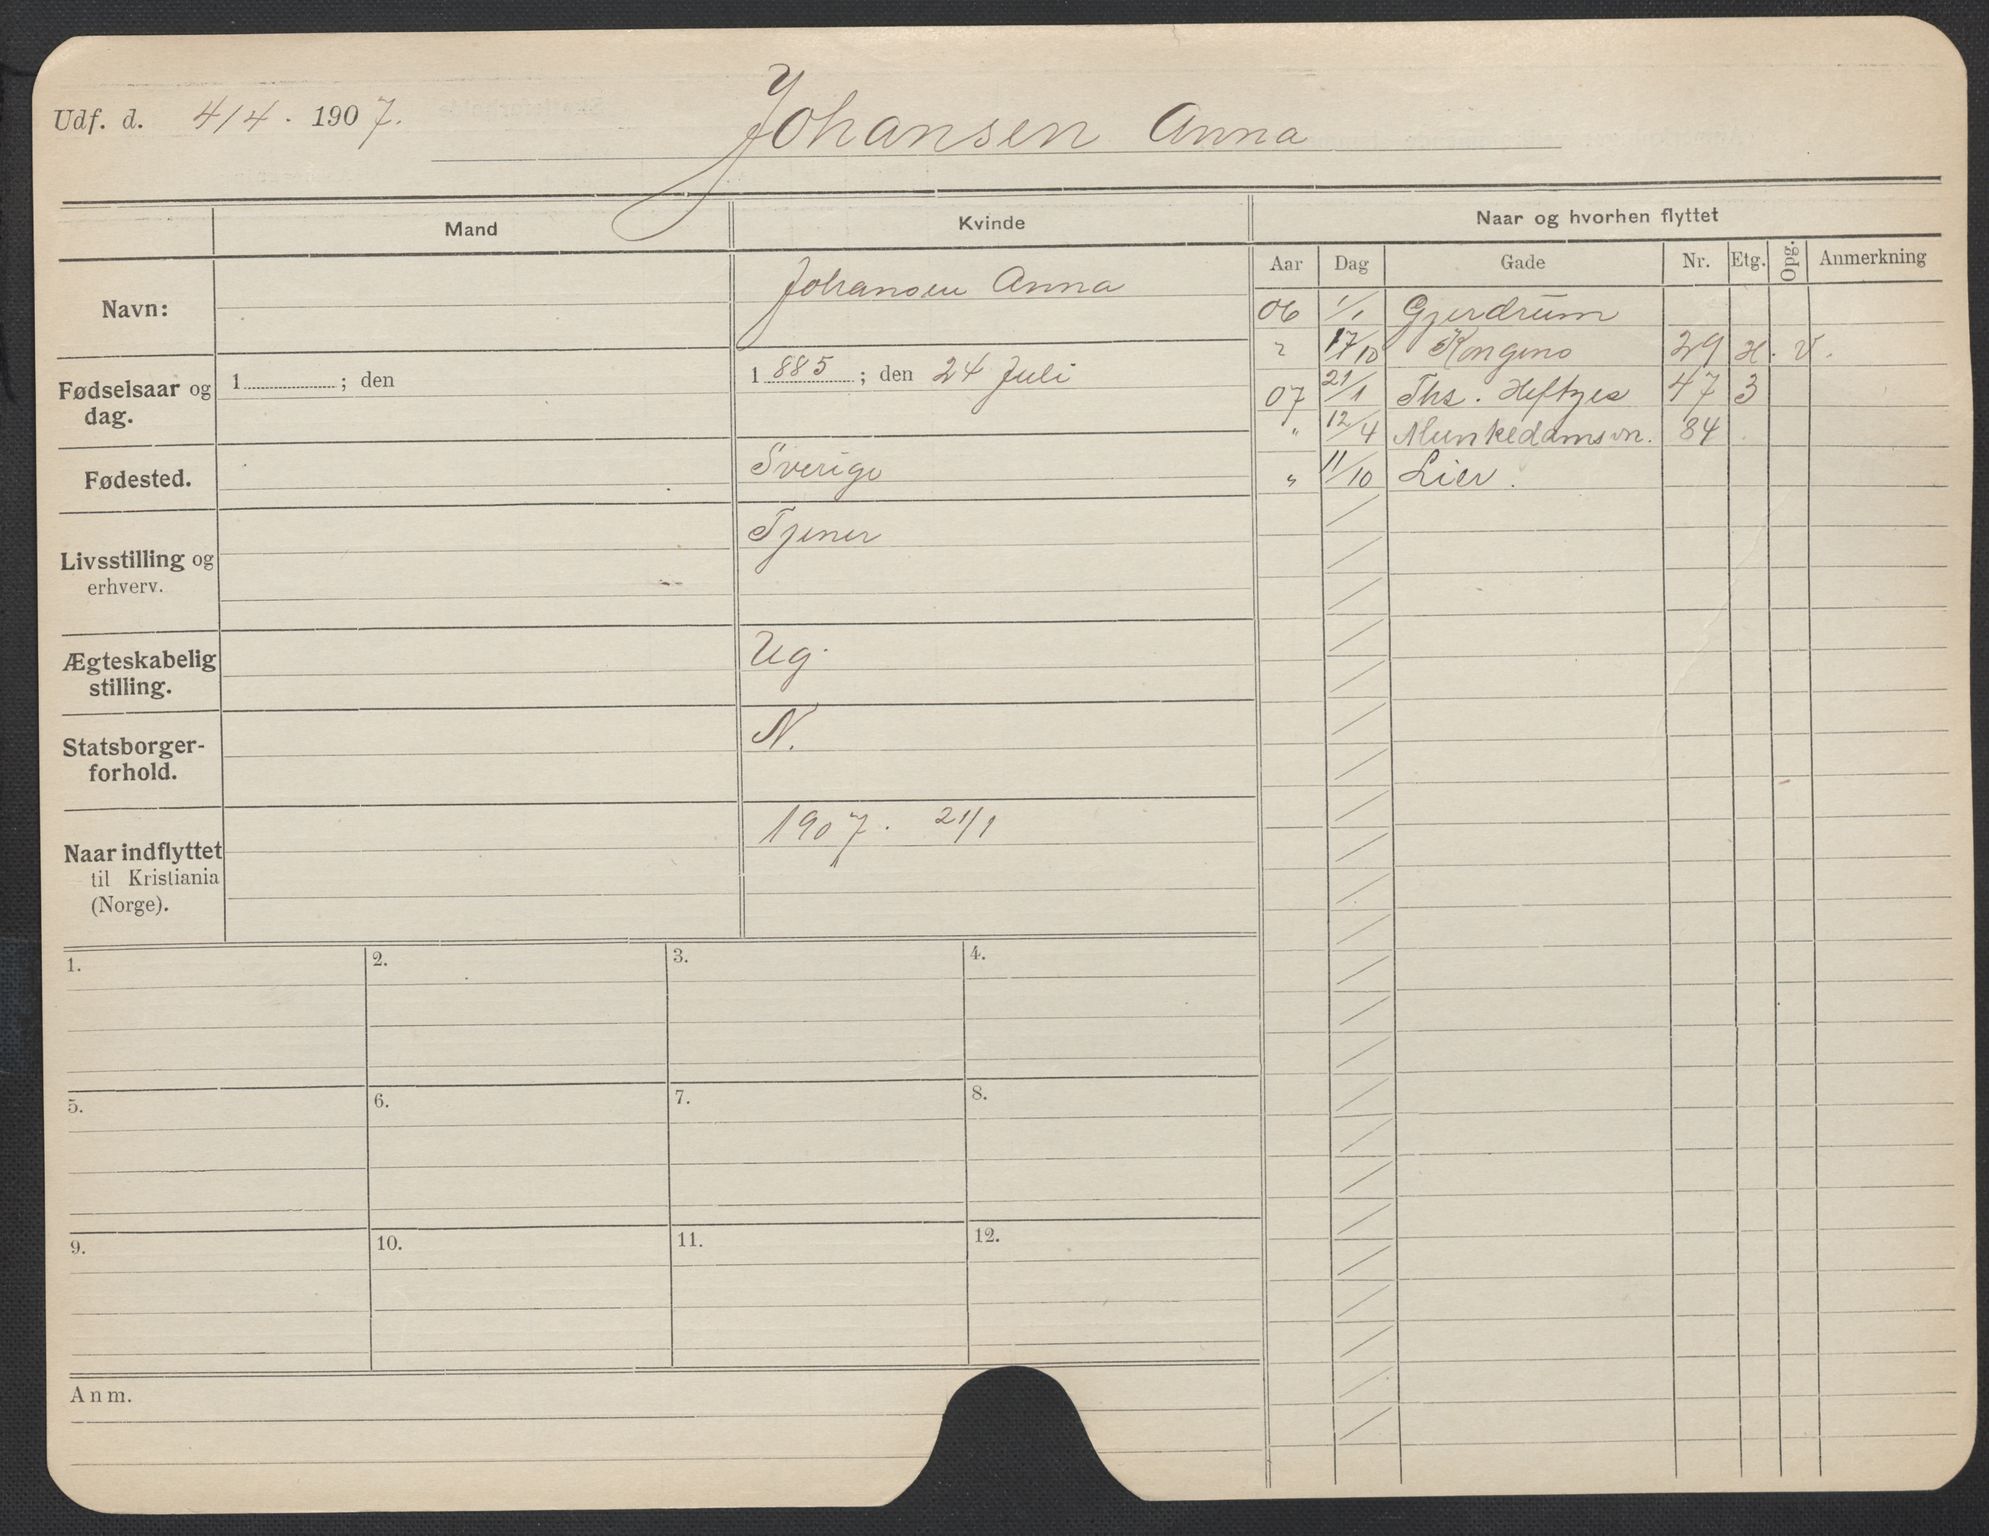 Udf. d. 4/4. 1907. Johansen Anna
Mand Kvinde Naar og hvorhen flyttet
Aar Dag Gade Nr. Etg. Opg. Anmerkning
Navn: Johansen Anna
Fødselsaar og dag. 1 ; den 1885 ; den 24 Juli
Fødested. Sverige
Livsstilling og erhverv. Tjener
Ægteskabelig stilling. Ug.
Statsborger-forhold. N.
Naar indflyttet til Kristiania (Norge). 1907. 21/1
06 1/1 Gjerdrum
17/10 Kongens 29 H. V.
07 21/1 Ths. Heftyes 47 3
" 12/4 Munkedamsvn. 84
" 11/10 Lier.
1. 2. 3. 4.
5. 6. 7. 8.
9. 10. 11. 12.
Anm.